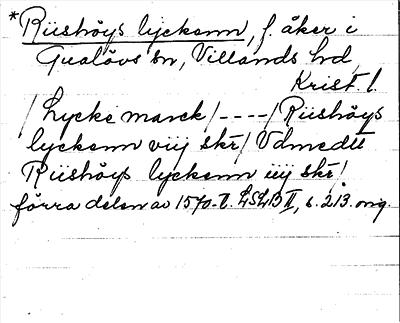 *Riishöys lyckenn, f. åker i
Gualövs sn, Villands hd,
Krist. l.
/ Lycke marck /----/ Riishöys
lyckenn viij skr / Vdmedtt
Riishöys lyckenn iiij skr /
förra delen av 1570-t. LSLB II, s. 213. orig.